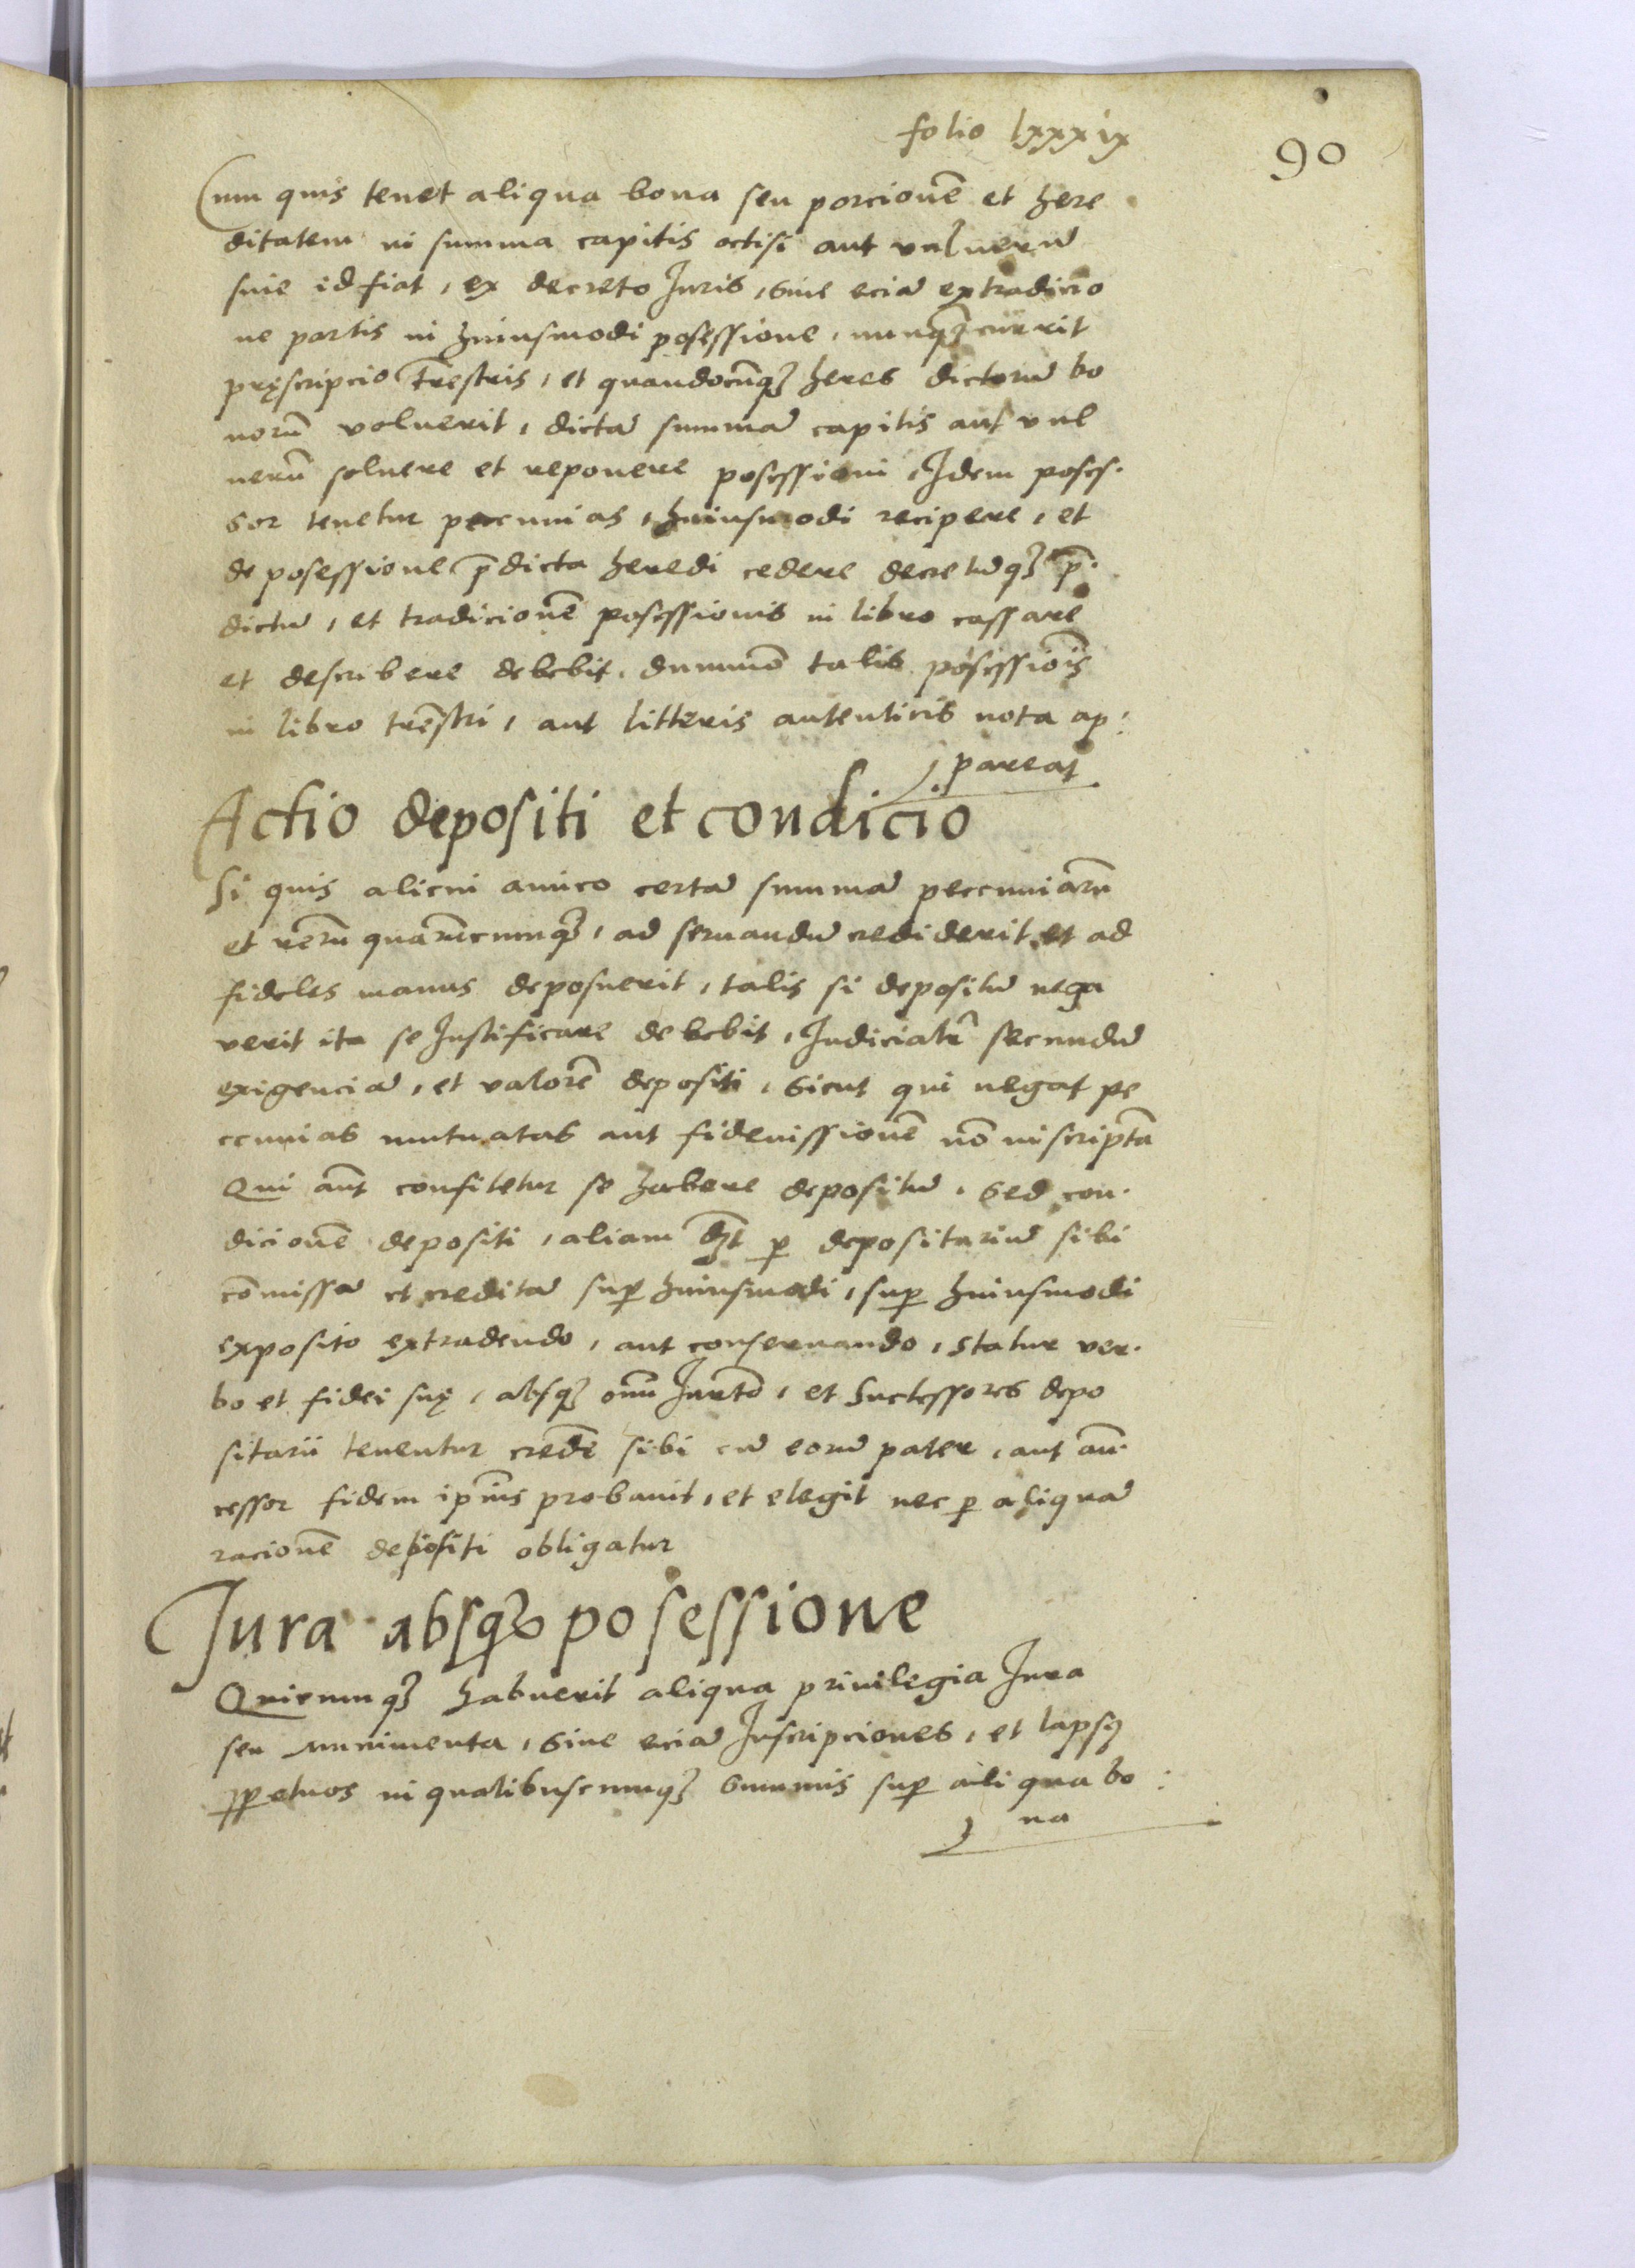 folio lxxxix
90
Cum quis tenet aliqua bona seu porcionē et here
ditatem in summa capitis octisi aut vulnerū
siue id fiat, ex decreto Juris, siue eciā extradicio
ne partis in huiusmodi posessione, nunqꝫ currit
pręscripcio trēstris, et quandocūqꝫ heres dictorū bo
norū voluerit, dictā summā capitis aut vul
nerū soluere et reponere posessioni, Idem poses.
sor tenetur peccunias, huiusmodi recipere, et
de posessione p̄dicta heredi cedere decretūqꝫ p̄.
dictū, et tradicionē posessionis in libro cassare
et describere debebit, dummō talis posessiōis
in libro trēstri, aut litteris autenticis nota ap:
pareat
Actio depositi et condicio
Si quis alicui amico certā summā peccuniarū
et rerū quarūcumqꝫ, ad seruandū crediderit et ad
fideles manus deposuerit, talis si depositū nega
verit ita se Justificare debebit, Judicialr̄ secundū
exigenciā, et valorē depositi, sicut qui negat pe
ccunias mutuatas aut fideiussionē nō inscriptā
Qui aūt confitetur se habere depositū, sed con.
dicionē depositi, aliam dꝫt ꝑ depositariū sibi
cōmissā et creditā suꝑ huiusmodi, suꝑ huiusmodi
exposito extradendo, aut conseruando, statur ver.
bo et fidei suę, absqꝫ omī Jurtō, et Successores depo
sitarii tenentur credē sibi cū eorū pater, aut an̄.
cessor fidem ip̄ius probauit, et elegit nec ꝑ aliquā
racionē depositi obligatur
Jura absqꝫ posessione
Quicumqꝫ habuerit aliqua priuilegia Jura
seu munimenta, siue eciā Inscripciones, et lapsꝯ
ꝑpetuos in qualibuscumqꝫ summis suꝑ aliqua bo:
na